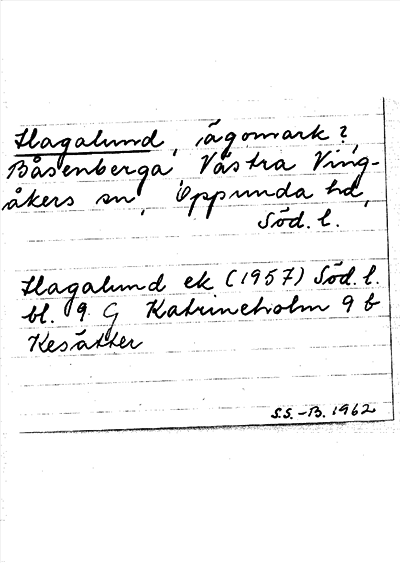 Hagalund, ägomark?,
Båsenberga, Västra Ving-
åkers sn, Oppunda hd,
Söd. l.
Hagalund ek (1957) Söd. l.
bl. 9 G Katrineholm 9 b
Kesätter
S.S.-B. 1962